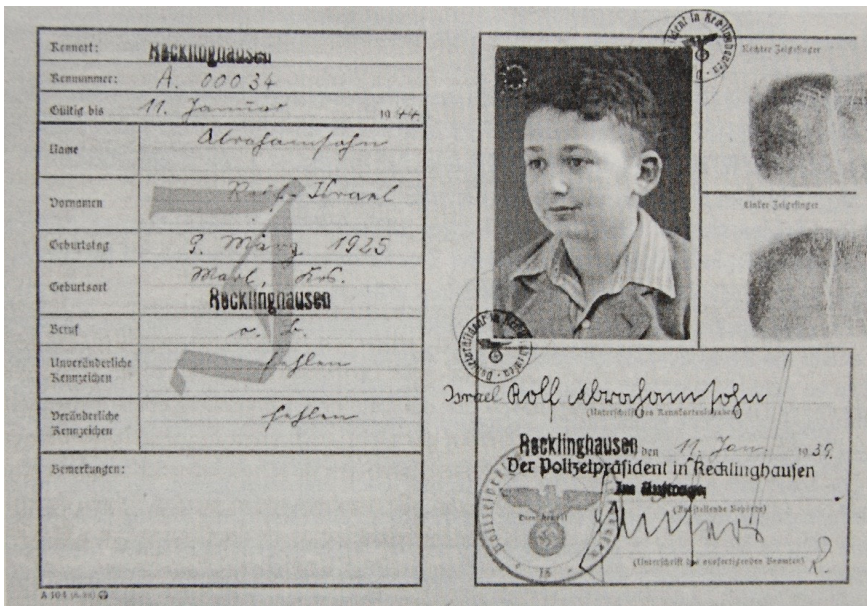 Kennort: Recklinghausen
Kennummer: A. 00034
Gültig bis 11. Januar 1944
Name Abrahamsohn
Vornamen Rolf Israel
Geburtstag 9. März 1925
Geburtsort Marl, Krs.
Recklinghausen
Beruf o. B.
Unveränderliche
Kennzeichen fehlen
Veränderliche
Kennzeichen fehlen
Bemerkungen:
A 104
J
Rechter Zeigefinger
Linker Zeigefinger
Israel Rolf Abrahamsohn
(Unterschrift des Kennkarteninhabers)
Recklinghausen den 11. Jan. 1939.
Der Polizeipräsident in Recklinghausen
Im Auftrage
(Ausstellende Behörde)
(Unterschrift des ausfertigenden Beamten)